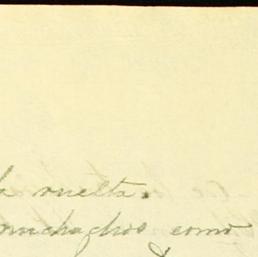 la vuelta.
muchachos, como